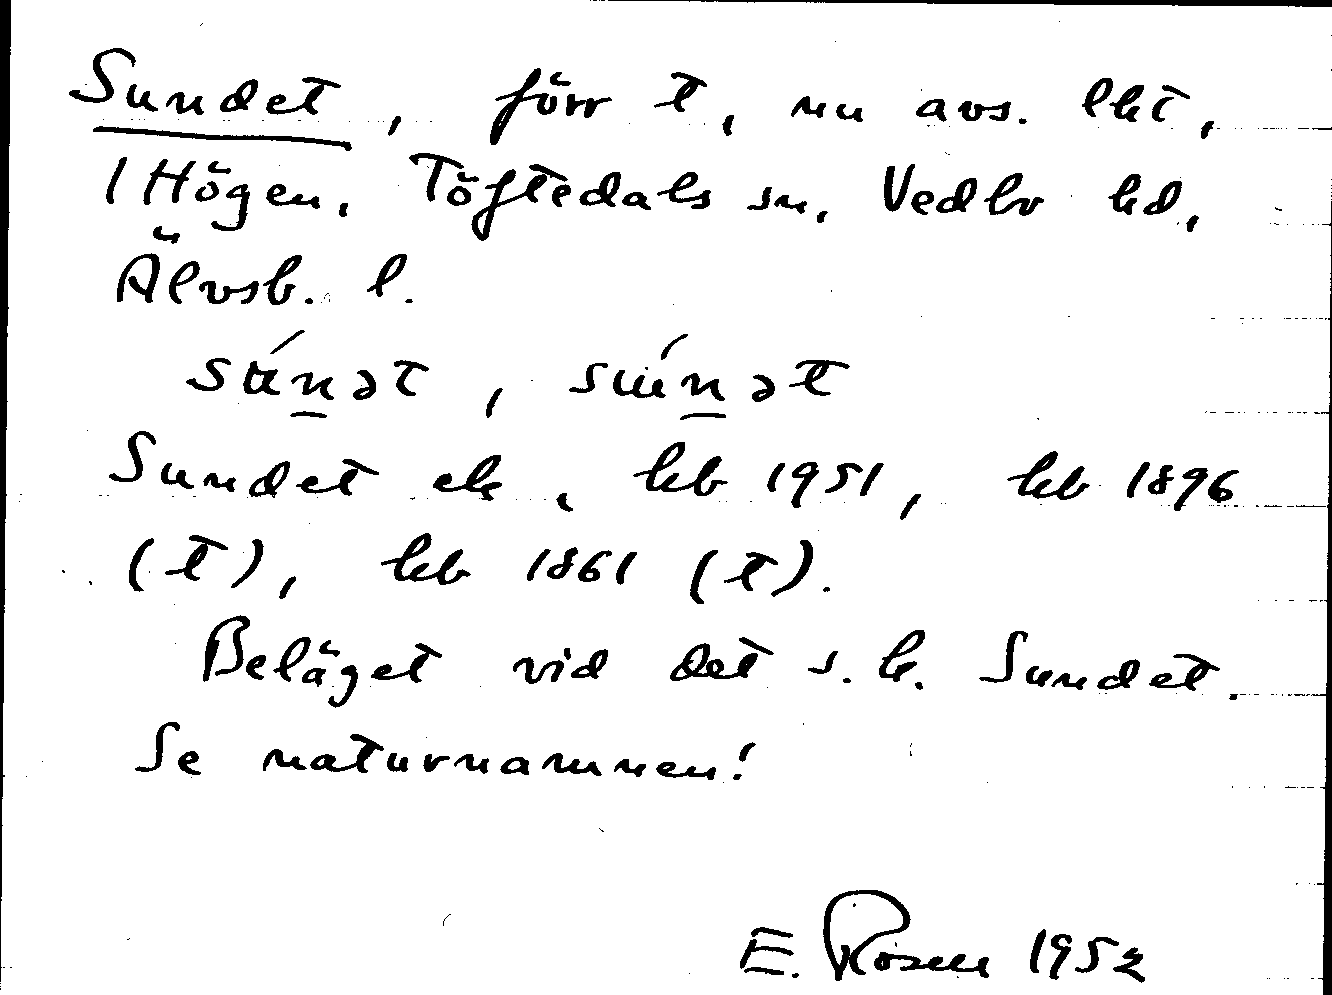 Sundet, förr t, nu avs. lht,
1 Högen, Töftedals sn, Vedbo hd,
Älvsb. l.
sʉ́n̲ət, sɯ́n̲ət
Sundet ek, kb 1951, kb 1896
(t), kb 1861 (t).
Beläget vid det s.k. Sundet.
Se naturnamnen!
E. Rosen 1952